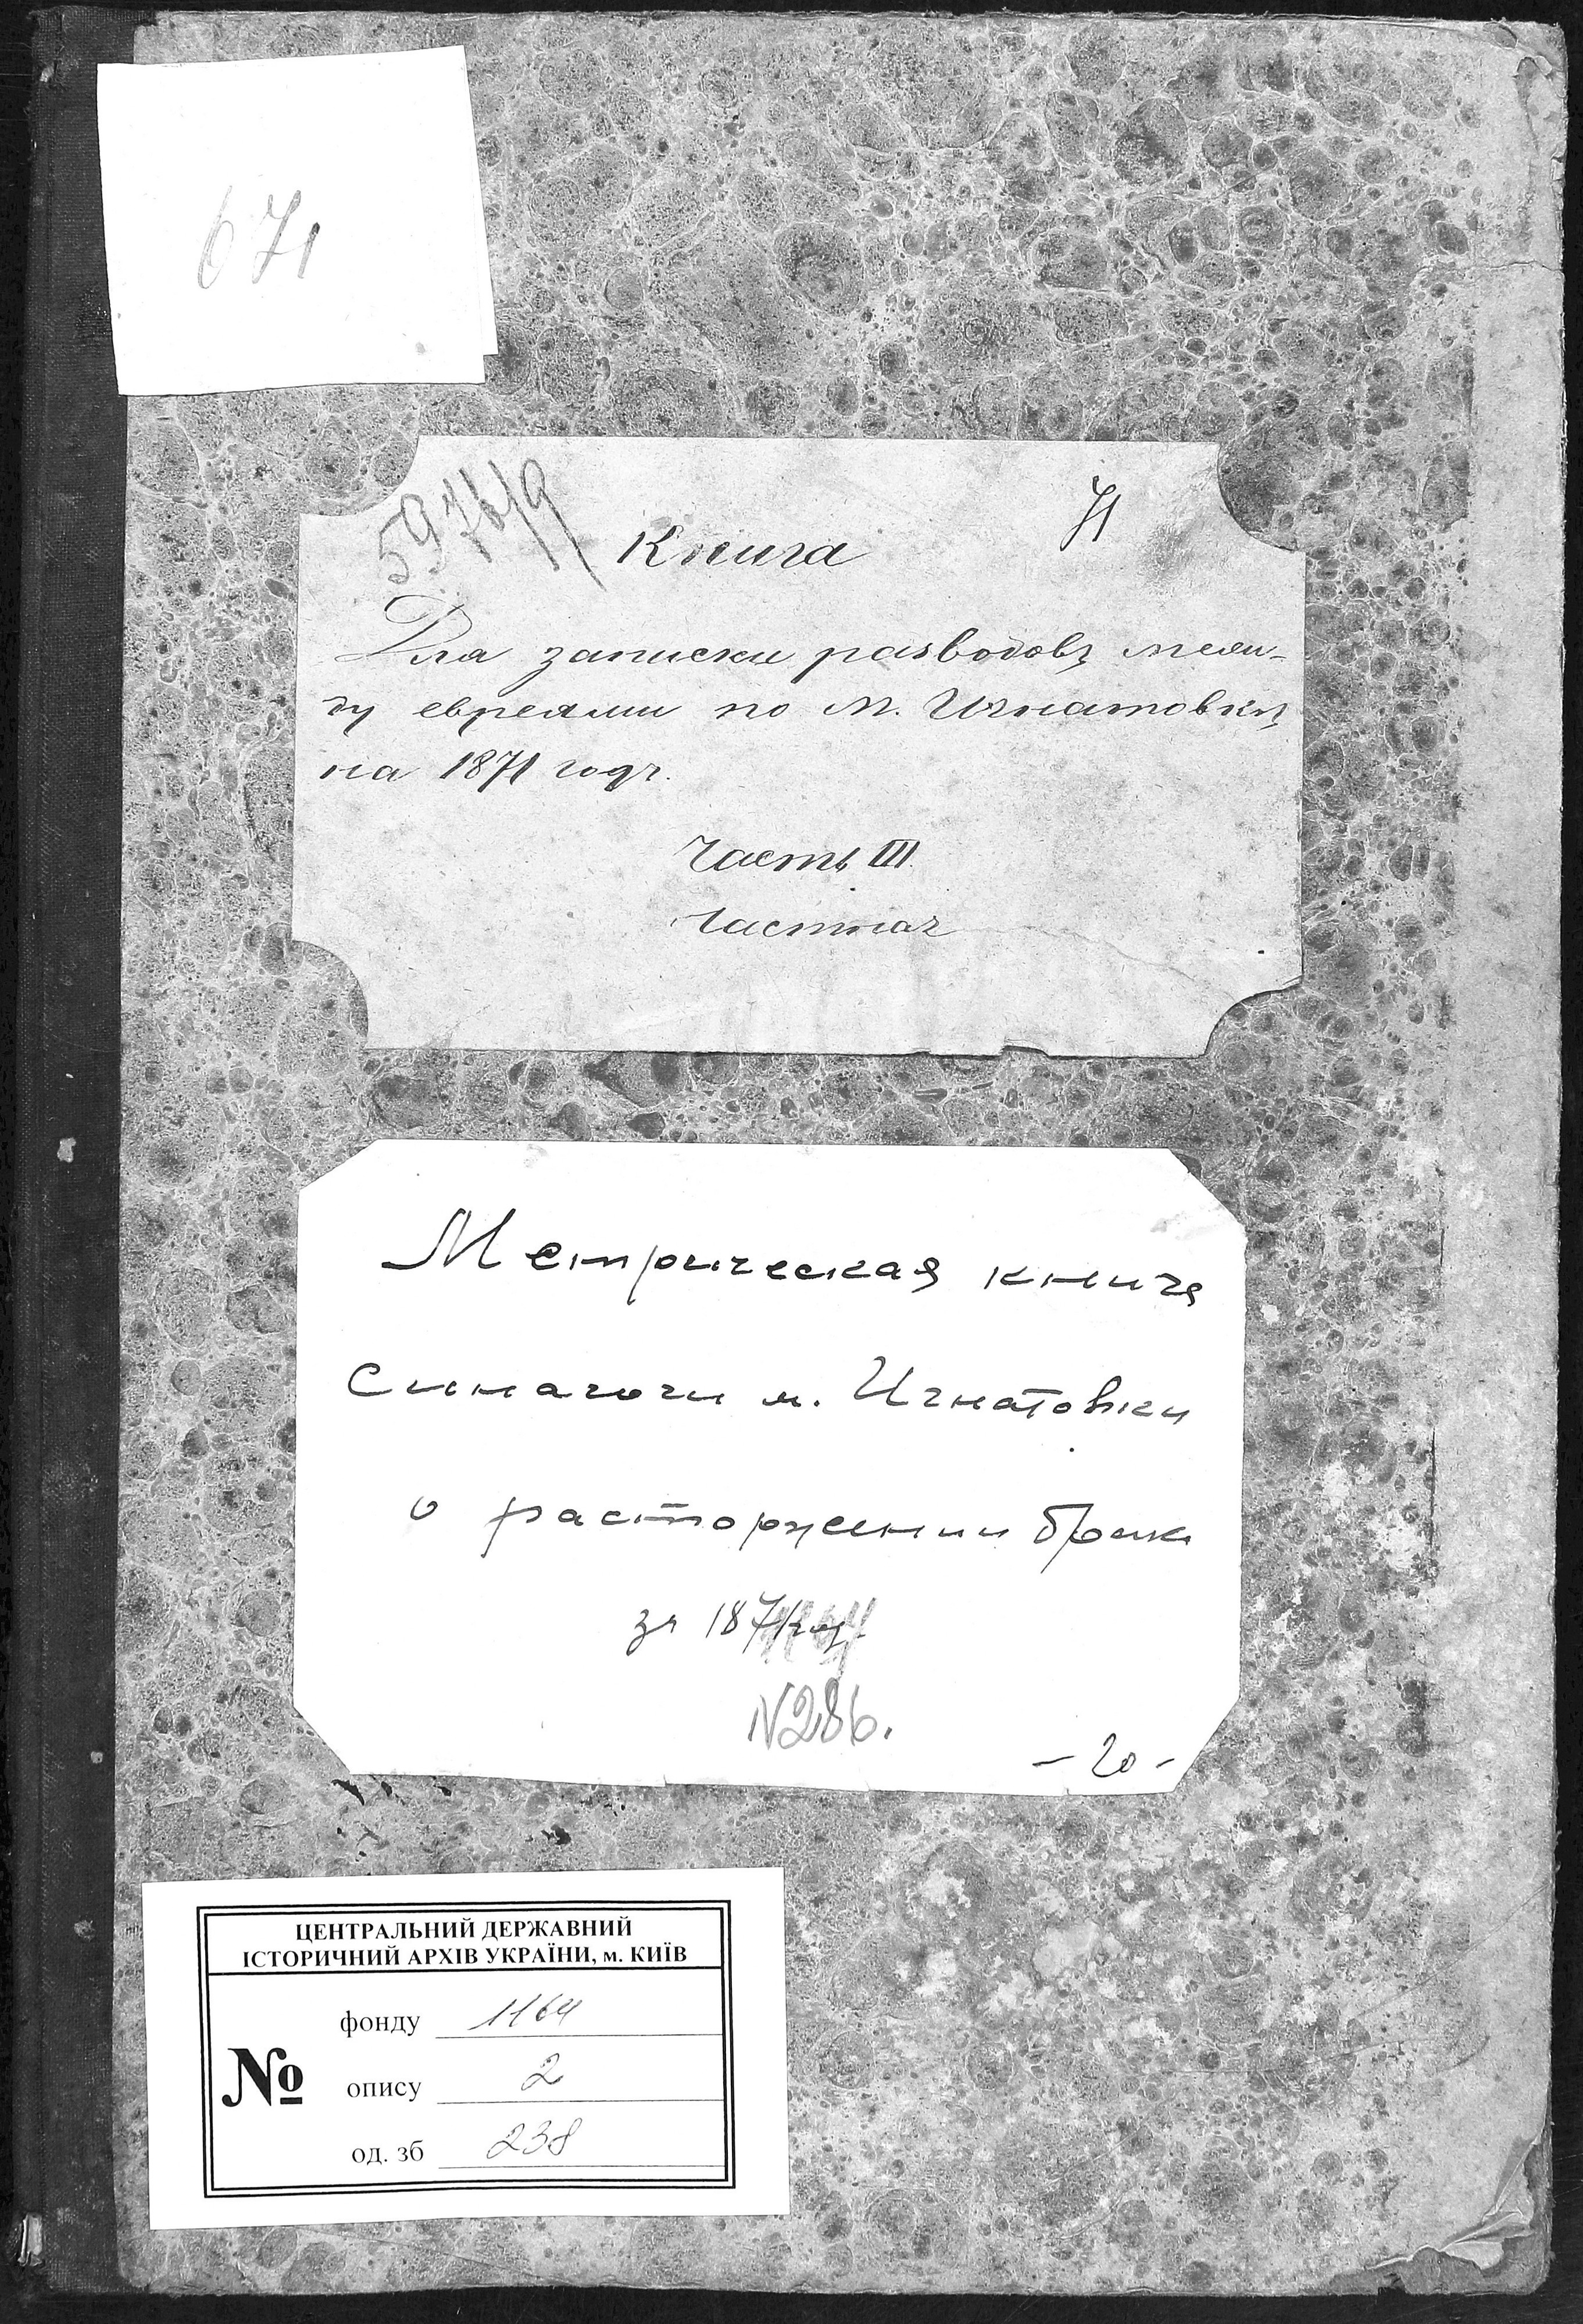 671
5976/9
71
Книга
Для записки разводовъ меж-
ду евреями по м. Игнатовкѣ
на 1871 годъ.
Часть III.
Частная
Метрическая книга
Синагоги м. Игнатовки
о расторжении брака
за 1871 год
N286.
- 20 -
ЦЕНТРАЛЬНИЙ ДЕРЖАВНИЙ
ІСТОРИЧНИЙ АРХІВ УКРАЇНИ, м. КИЇВ
№
фонду 1164
опису 2
од. зб 238